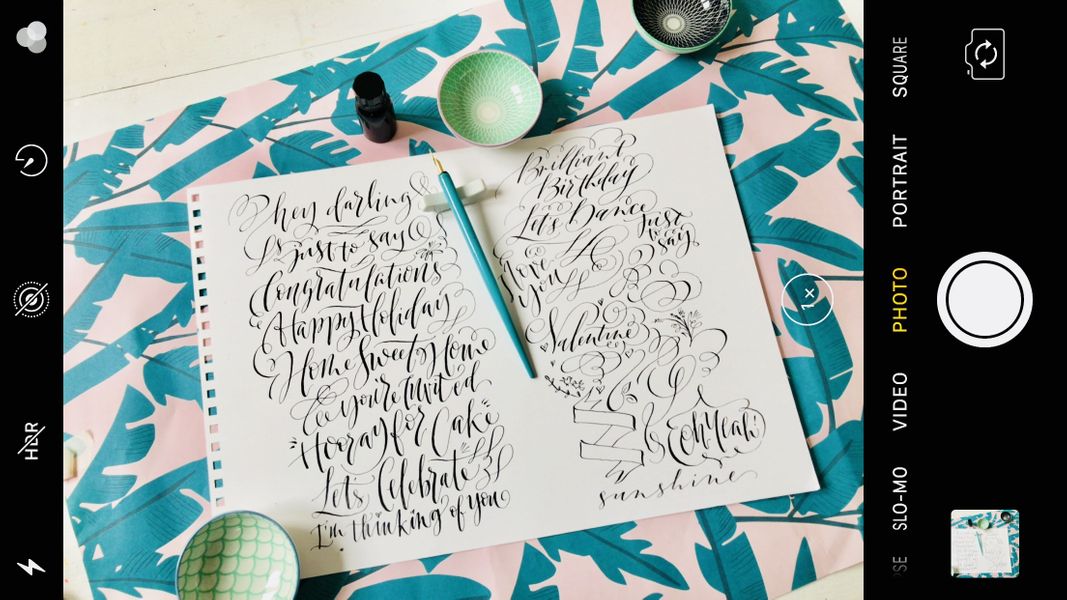 HDR
hey darling
just to say
Congratulations
Happy Holiday
Home Sweet Home
you're Invited
Hooray for Cake
Let's Celebrate
I'm thinking of you
Brilliant
Birthday
Let's Dance
Just
say
Love
you
Valentine
Oh Yeah!
sunshine
1×
SQUARE
PORTRAIT
PHOTO
VIDEO
SLO-MO